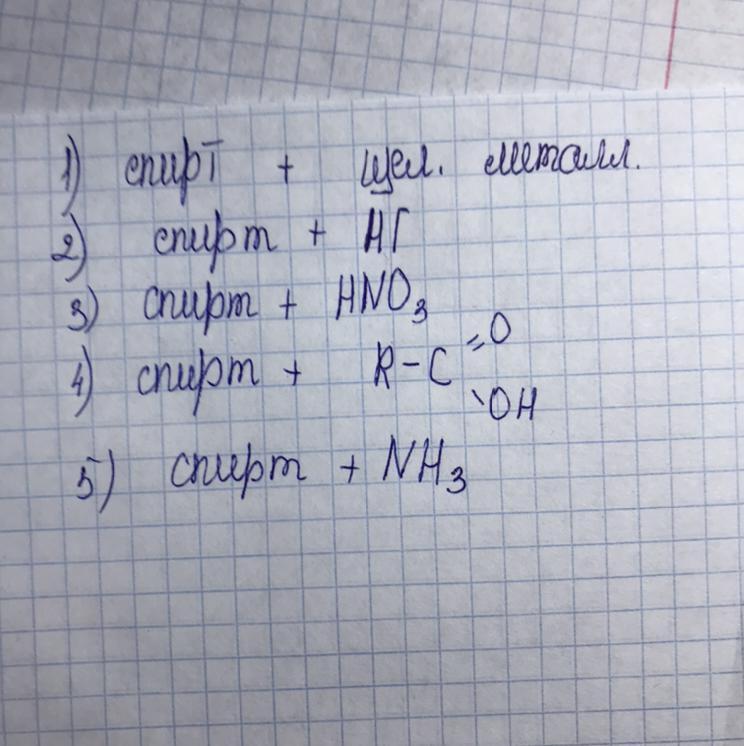 1) спирт + щел. металл.
2) спирт + НГ
3) спирт + HNO₃
4) спирт + R-C =O \OH
5) спирт + NH₃